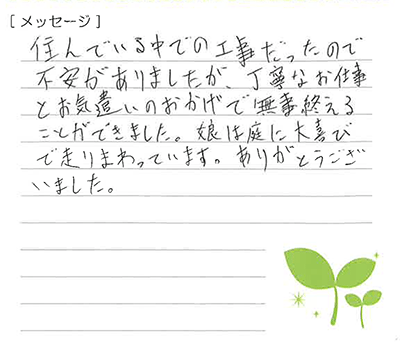 [メッセージ]
住んでいる中での工事だったので
不安がありましたが、丁寧なお仕事
とお気遣いのおかげで無事終える
ことができました。娘は庭に大喜び
で走りまわっています。ありがとうござ
いました。